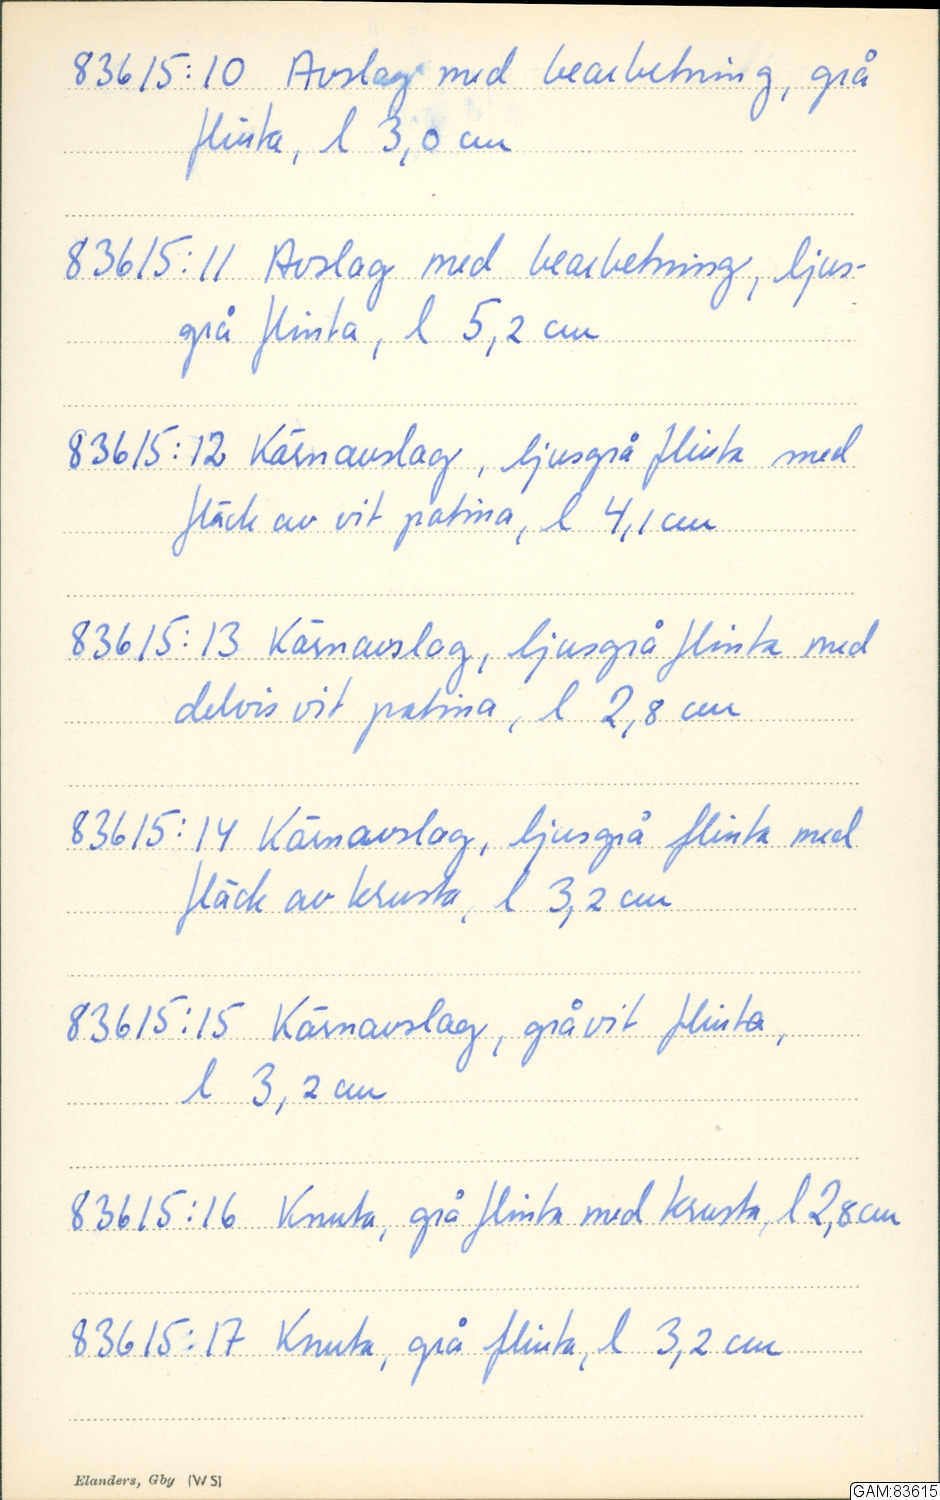 83615:10 Avslag med bearbetning, grå
flinta, l 3,0 cm
83615:11 Avslag med bearbetning, ljus-
grå flinta, l 5,2 cm
83615:12 Kärnavslag, ljusgrå flinta med
fläck av vit patina, l 4,1 cm
83615:13 Kärnavslag, ljusgrå flinta med
delvis vit patina, l 2,8 cm
83615:14 Kärnavslag, ljusgrå flinta med
fläck av krusta, l 3,2 cm
83615:15 Kärnavslag, gråvit flinta,
l 3,2 cm
83615:16 Knuta, grå flinta med krusta, l 2,8 cm
83615:17 Knuta, grå flinta, l 3,2 cm
Elanders, Gby (WS)
GAM:83615